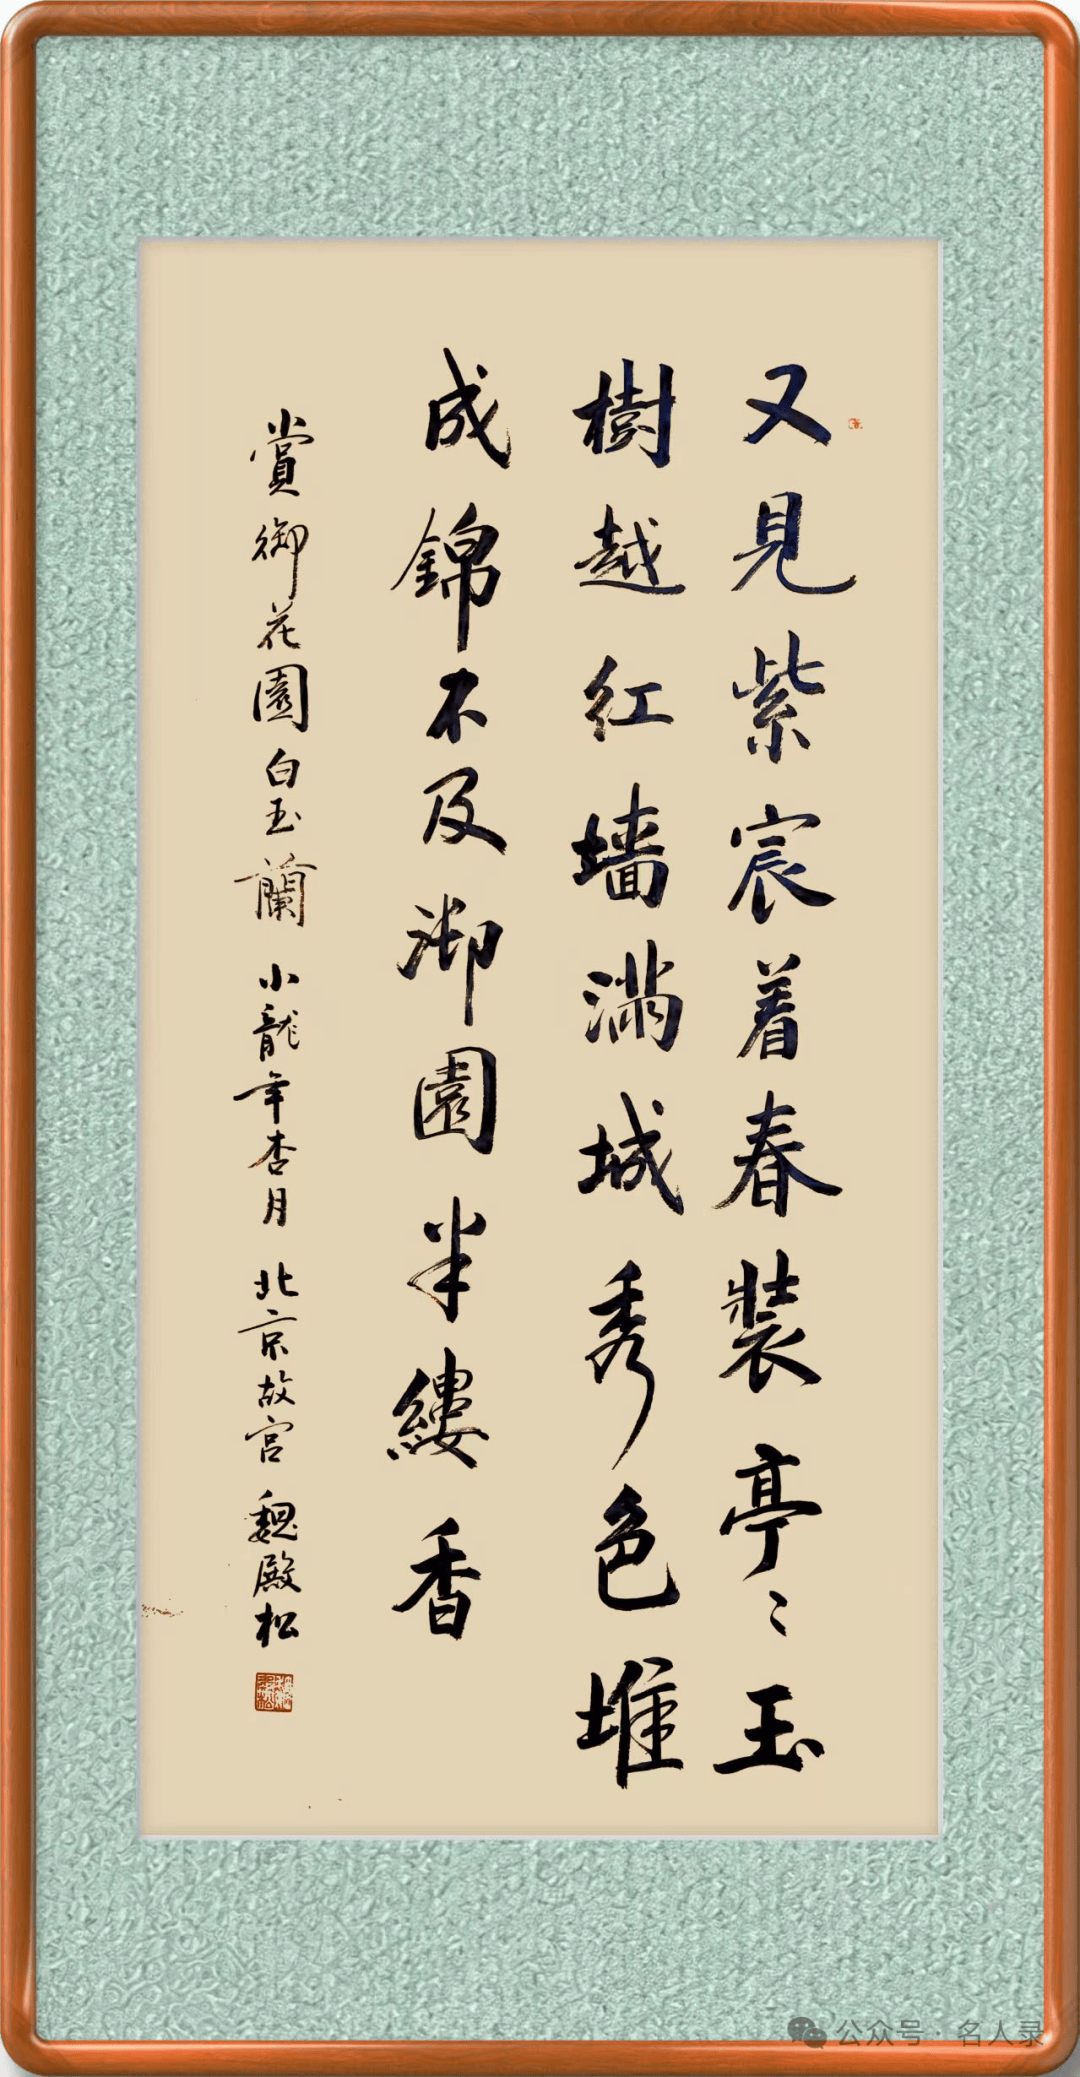 又見紫宸着春裝亭〻玉
樹越红墙满城秀色堆
成錦不及御園半縷香
賞御花園白玉蘭 小龍年杏月 北京故宫 魏殿松
公众号·名人录